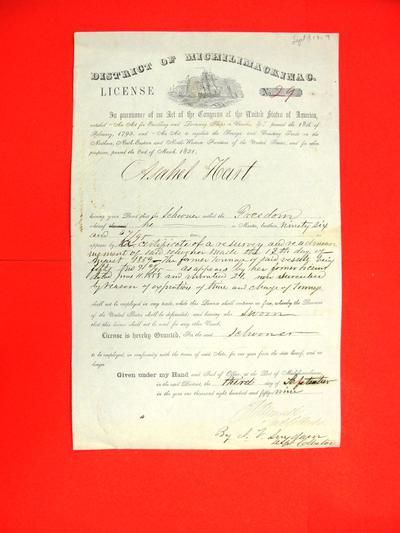 DISTRICT OF MICHILIMACKINAC.
LICENSE No. 29
In pursuance of an Act of the Congress of the United States of America,
entitled "An Act for Enrolling and Licensing Ships or Vessels, &c." passed the 18th of
February, 1793, and "An Act to regulate the Foreign and Coasting Trade on the
Northern, North-Eastern and North-Western Frontiers of the United States, and for other
purposes, passed the 2nd of March, 1831,
Asahel Hart
having given Bond that the Schooner called the Freedom
whereof he is Master, burthen ninety six
and 27/95
appears by certificate of a resurvey and readmeas
urement of said schooner made the 12th day of
August 1859 the former tonnage of said vessel, being
fifty one as appears by her former license
dated June and numbered 24 now surrendered
by reason of expiration of time and change of tonnage
shall not be employed in any trade, while this License shall continue in force, whereby the Revenue
of the United States shall be defrauded; and having also sworn
that this License shall not be used for any other Vessel.
License is hereby Granted, For the said schooner
to be employed, in conformity with the terms of said Acts, for one year from the date hereof, and no
longer.
Given under my Hand and Seal of Office, at the Port of Michilimackinac,
in the said District, this third day of September
in the year one thousand eight hundred and fifty nine
By
Collector